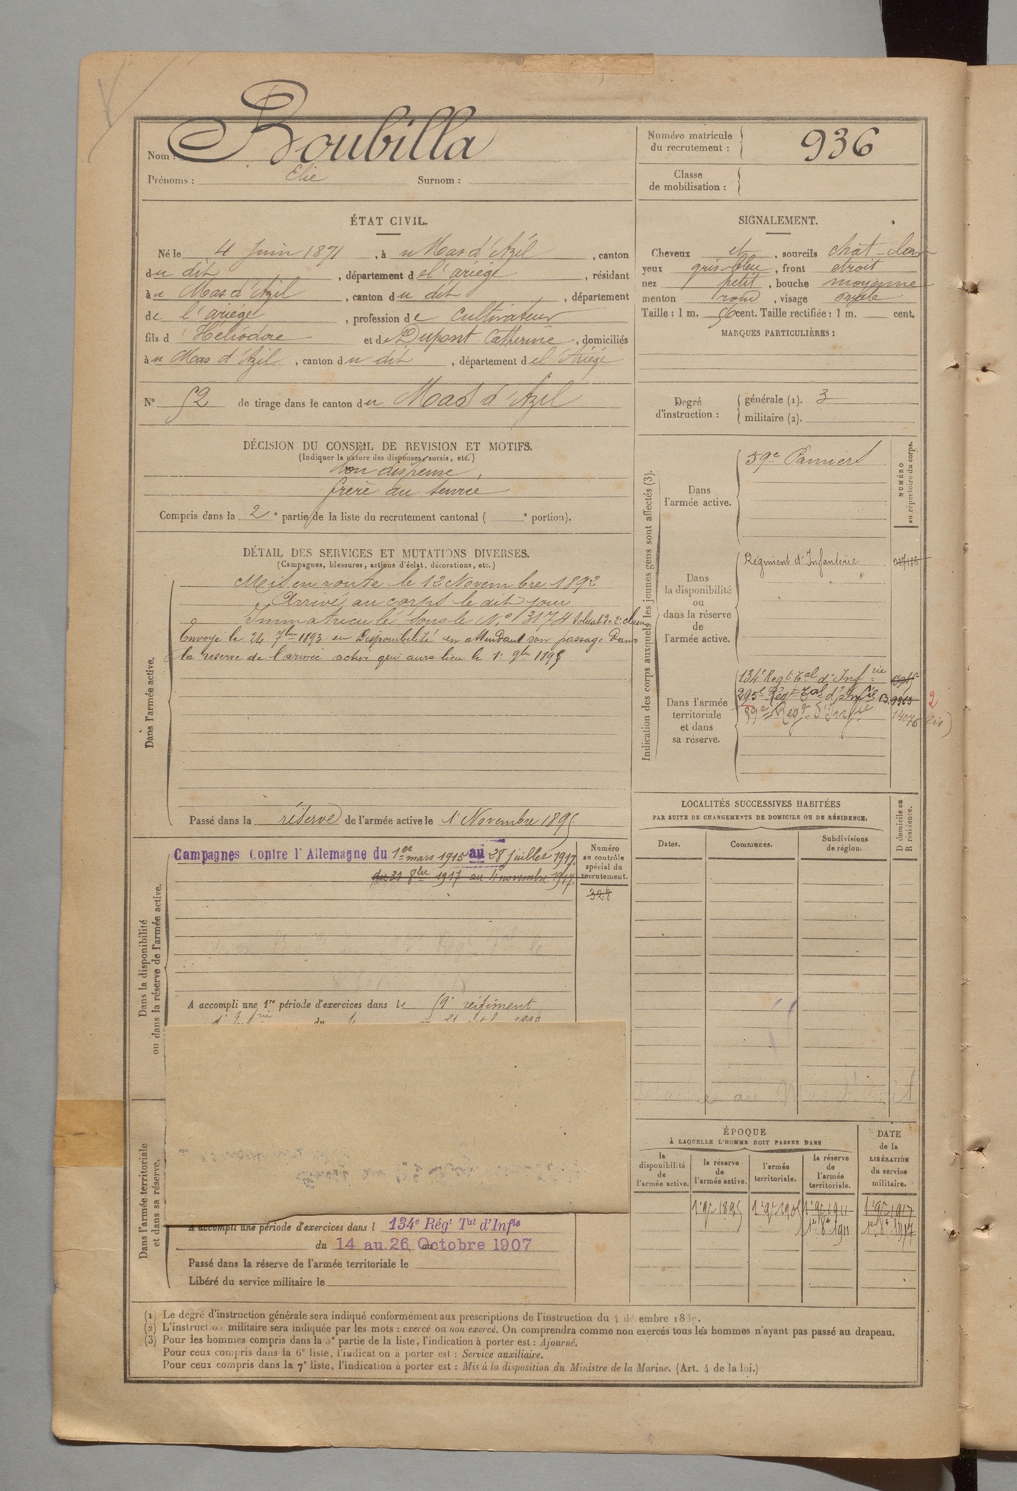 Nom : Roubilla
Prénoms : Elie Surnom :
Numéro matricule du recrutement : 936
Classe de mobilisation :
ÉTAT CIVIL.
Né le 4 Juin 1871, à u Mas d'Azil, canton
du dit, département de l'ariège, résidant
à u Mas d'Azil, canton du dit, département
de l'ariège, profession de Cultivateur
fils d' Héliodore et de Dupont Catherine, domiciliés
à u Mas d'Azil, canton du dit, département de l'Ariège
N° 52 de tirage dans le canton du Mas d'Azil
SIGNALEMENT.
Cheveux et, sourcils chat-clair
yeux gris-bleu, front étroit
nez petit, bouche moyenne
menton rond, visage ovale
Taille : 1 m. 56 cent. Taille rectifiée : 1 m. cent.
MARQUES PARTICULIÈRES :
Degré d'instruction : générale (1). 3
militaire (2).
DÉCISION DU CONSEIL DE REVISION ET MOTIFS.
(Indiquer la nature des dispenses, sursis, etc.)
Bon dispensé
frère au service
Compris dans la 2e partie de la liste du recrutement cantonal ( e portion).
DÉTAIL DES SERVICES ET MUTATIONS DIVERSES.
(Campagnes, blessures, actions d'éclat, décorations, etc.)
Dans l'armée active.
Mis en route le 12 Novembre 1892
Arrivé au corps le dit jour
Immatriculé sous le N° 13174 Soldat de 2e classe
Envoyé le 24 7bre 1893 en Disponibilité en attendant son passage Dans
la réserve de l'armée active qui aura lieu le 1er 9bre 1895
Passé dans la réserve de l'armée active le 1er Novembre 1895
Indication des corps auxquels les jeunes gens sont affectés (3).
NUMÉRO au répertoire du corps.
Dans l'armée active.
59e Pamiers
Dans la disponibilité ou dans la réserve de l'armée active.
Régiment d'Infanterie
Dans l'armée territoriale et dans sa réserve.
134e Régt Tal d'Infie
295e Régt Tal d'Infie B.9363
59e Régt d'Infie 14076
2
bis)
LOCALITÉS SUCCESSIVES HABITÉES
PAR SUITE DE CHANGEMENTS DE DOMICILE OU DE RÉSIDENCE.
D domicile ou R résidence.
Dates. Communes. Subdivisions de région.
Dans la disponibilité ou dans la réserve de l'armée active.
Campagnes Contre l'Allemagne du 1er mars 1915 au 28 juillet 1917.
du 31 8bre 1917 au 4 novembre 1917.
Numéro au contrôle spécial du recrutement.
328
A accompli une 1re période d'exercices dans le 59e régiment
ÉPOQUE
À LAQUELLE L'HOMME DOIT PASSER DANS
la disponibilité de l'armée active.
la réserve de l'armée active.
l'armée territoriale.
la réserve de l'armée territoriale.
DATE de la LIBÉRATION du service militaire.
1er 9bre 1895 1er 9bre 1905 1er 9bre 1911 1er 9bre 1917
1er 8bre 1911 1er 8bre 1917
Dans l'armée territoriale et dans sa réserve.
A accompli une période d'exercices dans l 134e Régt Tal d'Infie
du 14 au 26 Octobre 1907
Passé dans la réserve de l'armée territoriale le
Libéré du service militaire le
(1) Le degré d'instruction générale sera indiqué conformément aux prescriptions de l'instruction du 4 décembre 1889.
(2) L'instruction militaire sera indiquée par les mots : exercé ou non exercé. On comprendra comme non exercés tous les hommes n'ayant pas passé au drapeau.
(3) Pour les hommes compris dans la 5e partie de la liste, l'indication à porter est : Ajourné.
Pour ceux compris dans la 6e liste, l'indication à porter est : Service auxiliaire.
Pour ceux compris dans la 7e liste, l'indication à porter est : Mis à la disposition du Ministre de la Marine. (Art. 4 de la loi.)